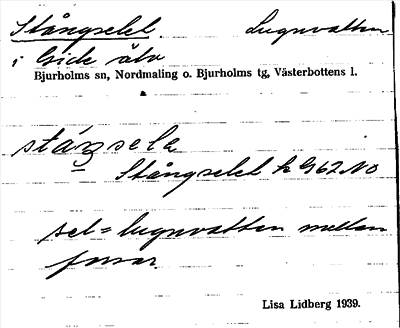 Stångselet. Lugnvatten
i Gide älv
Bjurholms sn, Nordmaling o. Bjurholms tg, Västerbottens l.
stáŋsela
Stångselet k G62 NO
sel = lugnvatten mellan
forsar.
Lisa Lidberg 1939.